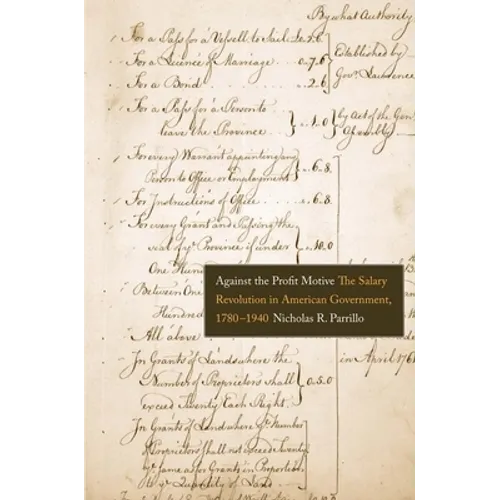 By what Authority
For a Pass for a Vessell to Sail £
Established by
For a Licence of Marriage .... 0..7..6
Gov.r Lawrence
For a Bond ........ 2..6
For a Pass for a Person to
leave the Province
.. 1..0
by Act of the Gen
Assembly
For every Warrant appointing any
Person to Office or Employment
.. 6..8
For Instructions of Office .... 6..8
For every Grant and Passing the
seal of y.e Province if under
One Hun
.. 10..0
Between One
Hundred
All above
in April 176
Against the Profit Motive The Salary
Revolution in American Government,
1780–1940 Nicholas R. Parrillo
In Grants of Lands where the
Number of Proprietors shall
exceed Twenty Each Right.
0..5..0
In Grants of Land where y.e Number
of Proprietors shall not exceed Twenty
y.e same as for Grants in Proportion
to y.e Quantity of Land